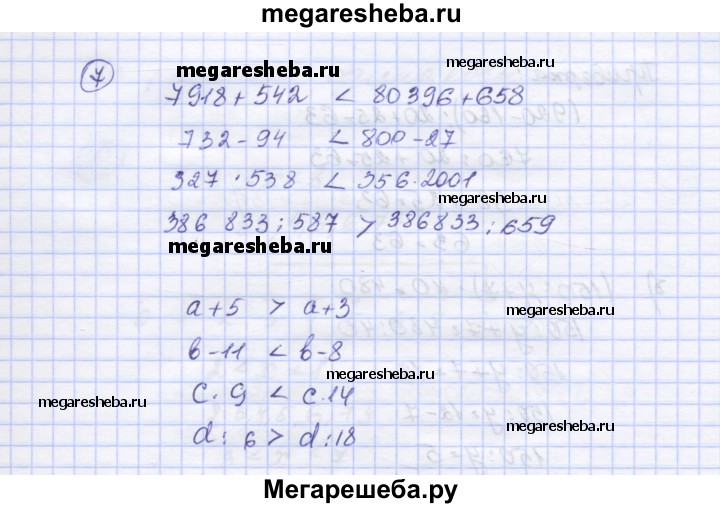 megaresheba.ru
7
megaresheba.ru
megaresheba.ru
7918 + 542 < 80396 + 658
732 - 94 < 800 - 27
megaresheba.ru
327 · 538 < 356 · 2001
386 833 : 587 > 386833 : 659
megaresheba.ru
a + 5 > a + 3
megaresheba.ru
b - 11 < b - 8
megaresheba.ru
c · 9 < c · 14
megaresheba.ru
d : 6 > d : 18
megaresheba.ru
Мегарешеба.ру